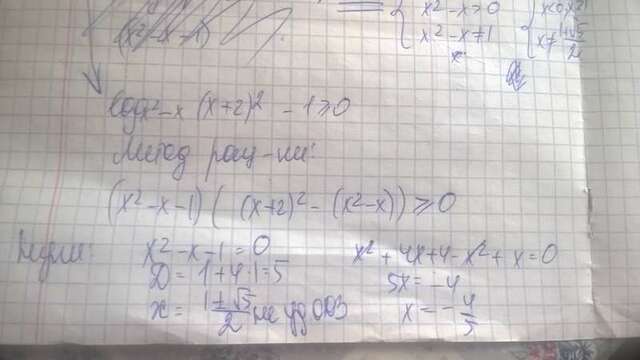 x² - x > 0
x² - x ≠ 1
x<0, x>1
x ≠ (1±√5)/2
log x²-x (x+2)² - 1 ≥ 0
Метод рац-ии:
(x² - x - 1) ( (x+2)² - (x² - x)) ≥ 0
x² - x - 1 = 0
D = 1 + 4·1 = 5
x = (1±√5)/2 не уд ОДЗ
x² + 4x + 4 - x² + x = 0
5x = -4
x = -4/5